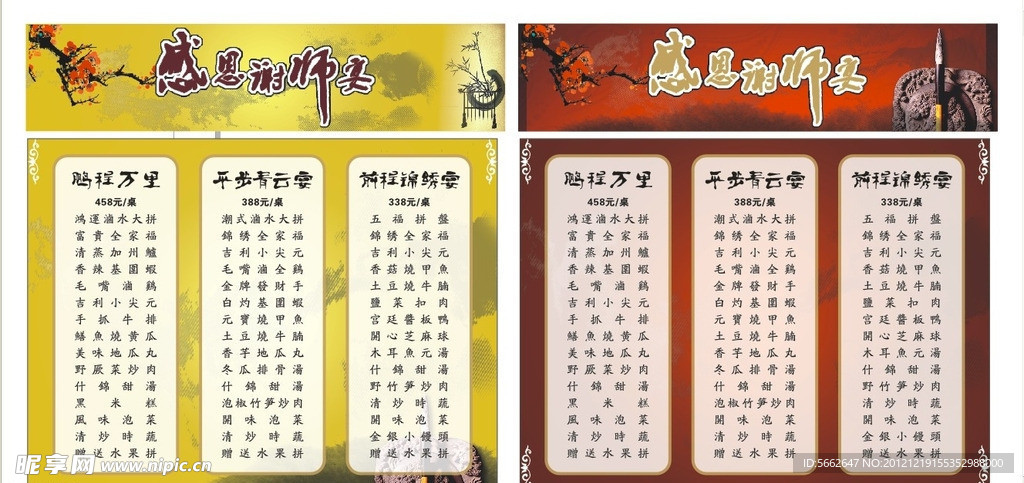 感恩谢师宴
鹏程万里
458元/桌
鴻運滷水大拼
富貴全家福
清蒸加州鱸
香辣基圍蝦
毛嘴滷鷄
吉利小尖元
手抓牛排
鱔魚燒黄瓜
美味地瓜丸
野厥菜炒肉
什錦甜湯
黑米糕
風味泡菜
清炒時蔬
贈送水果拼
平步青云宴
388元/桌
潮式滷水大拼
錦绣全家福
吉利小尖元
毛嘴滷全鷄
金牌發財手
白灼基圍蝦
元寶燒甲魚
土豆燒牛腩
香芋地瓜丸
冬瓜排骨湯
什錦甜湯
泡椒竹笋炒肉
開味泡菜
清炒時蔬
贈送水果拼
前程锦綉宴
338元/桌
五福拼盤
錦绣全家福
吉利小尖元
香菇燒甲魚
土豆燒牛腩
鹽菜扣肉
宫廷醬板鴨
開心芝麻球
木耳魚元湯
什錦甜湯
野竹笋炒肉
清炒時蔬
開味泡菜
金銀小饅頭
贈送水果拼
感恩谢师宴
鹏程万里
458元/桌
鴻運滷水大拼
富貴全家福
清蒸加州鱸
香辣基圍蝦
毛嘴滷鷄
吉利小尖元
手抓牛排
鱔魚燒黄瓜
美味地瓜丸
野厥菜炒肉
什錦甜湯
黑米糕
風味泡菜
清炒時蔬
贈送水果拼
平步青云宴
388元/桌
潮式滷水大拼
錦绣全家福
吉利小尖元
毛嘴滷全鷄
金牌發財手
白灼基圍蝦
元寶燒甲魚
土豆燒牛腩
香芋地瓜丸
冬瓜排骨湯
什錦甜湯
泡椒竹笋炒肉
開味泡菜
清炒時蔬
贈送水果拼
前程锦綉宴
338元/桌
五福拼盤
錦绣全家福
吉利小尖元
香菇燒甲魚
土豆燒牛腩
鹽菜扣肉
宫廷醬板鴨
開心芝麻球
木耳魚元湯
什錦甜湯
野竹笋炒肉
清炒時蔬
開味泡菜
金銀小饅頭
贈送水果拼
昵享网 www.nipic.cn
ID:5662647 NO:20121219155352988000